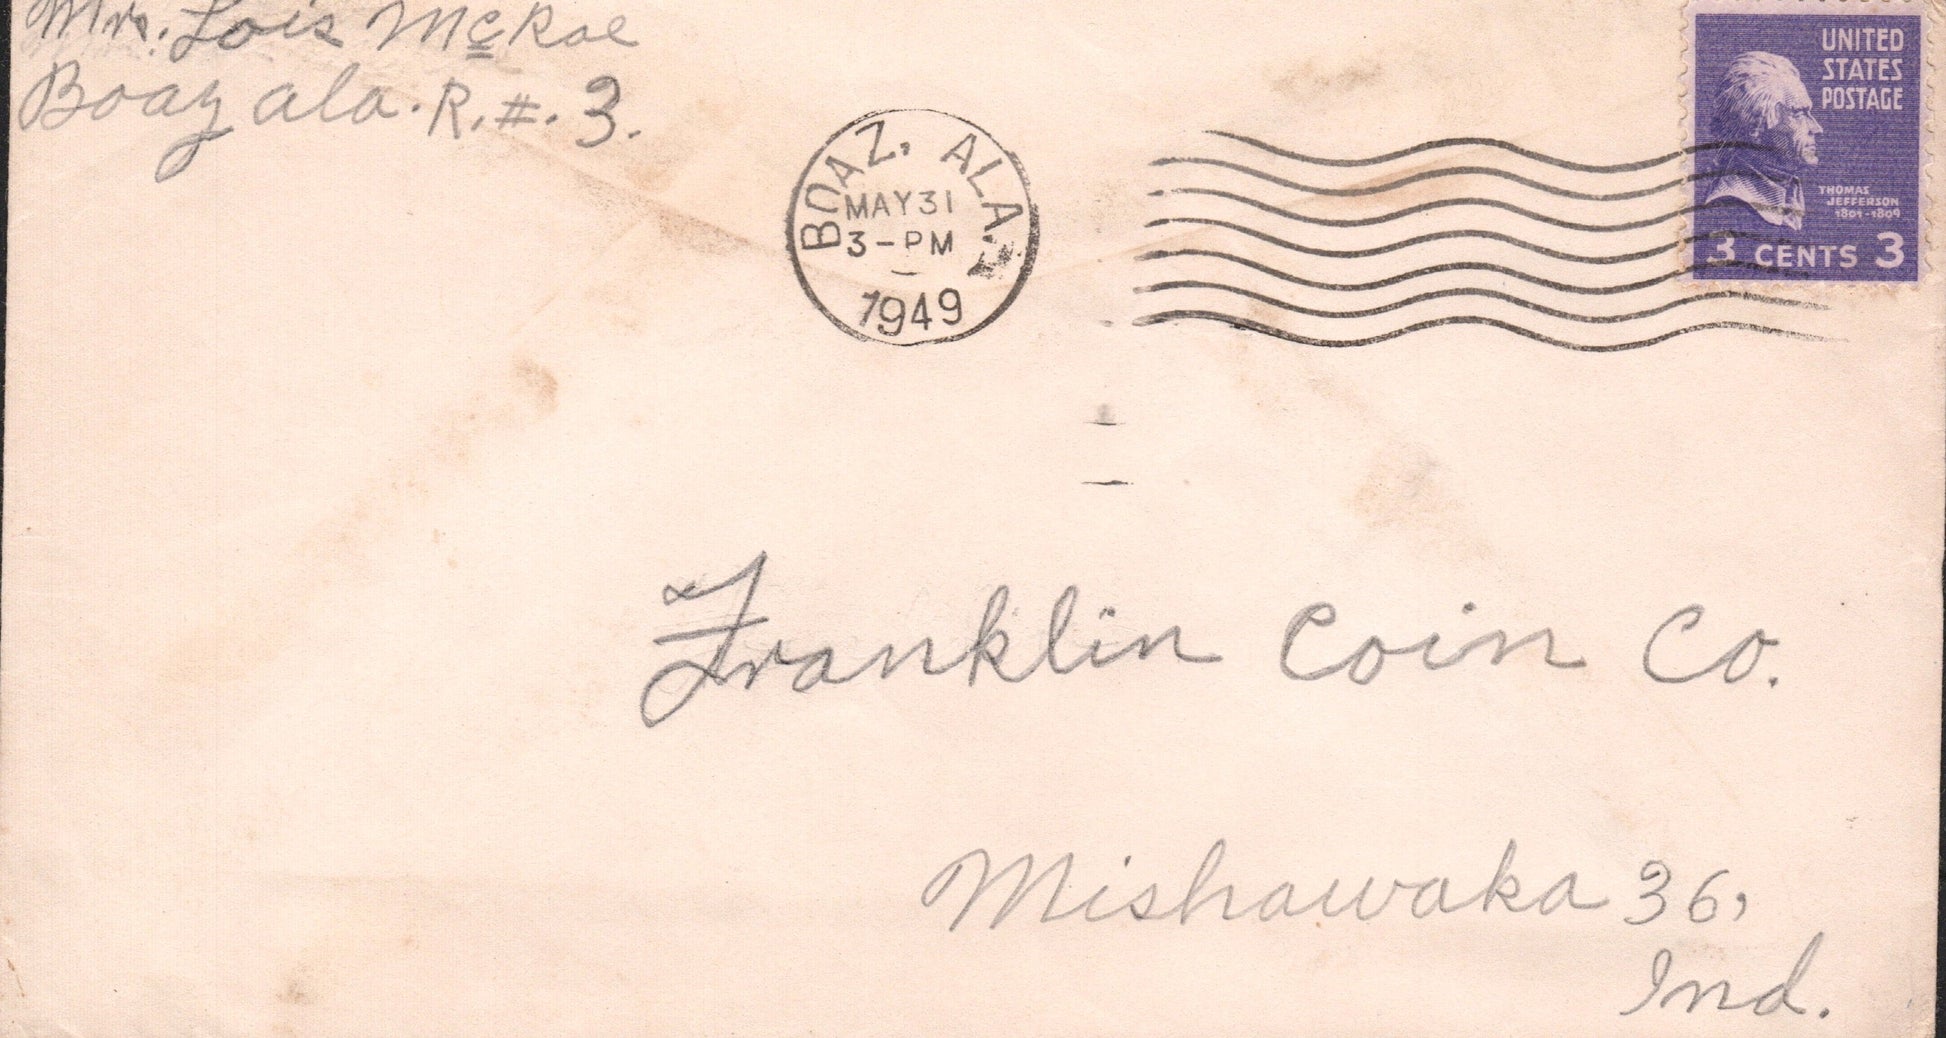 Mrs. Lois McRae
Boaz ala. R. #. 3.
BOAZ, ALA.
MAY 31
3-PM
1949
UNITED
STATES
POSTAGE
THOMAS
JEFFERSON
1801-1809
3 CENTS 3
Franklin Coin Co.
Mishawaka 36,
Ind.